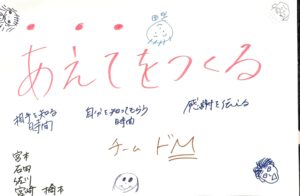 あえてをつくる
相手を知る時間
自分を知ってもらう時間
感謝を伝える
チーム ドM
宮本
石田
佐川
宮崎 橋本